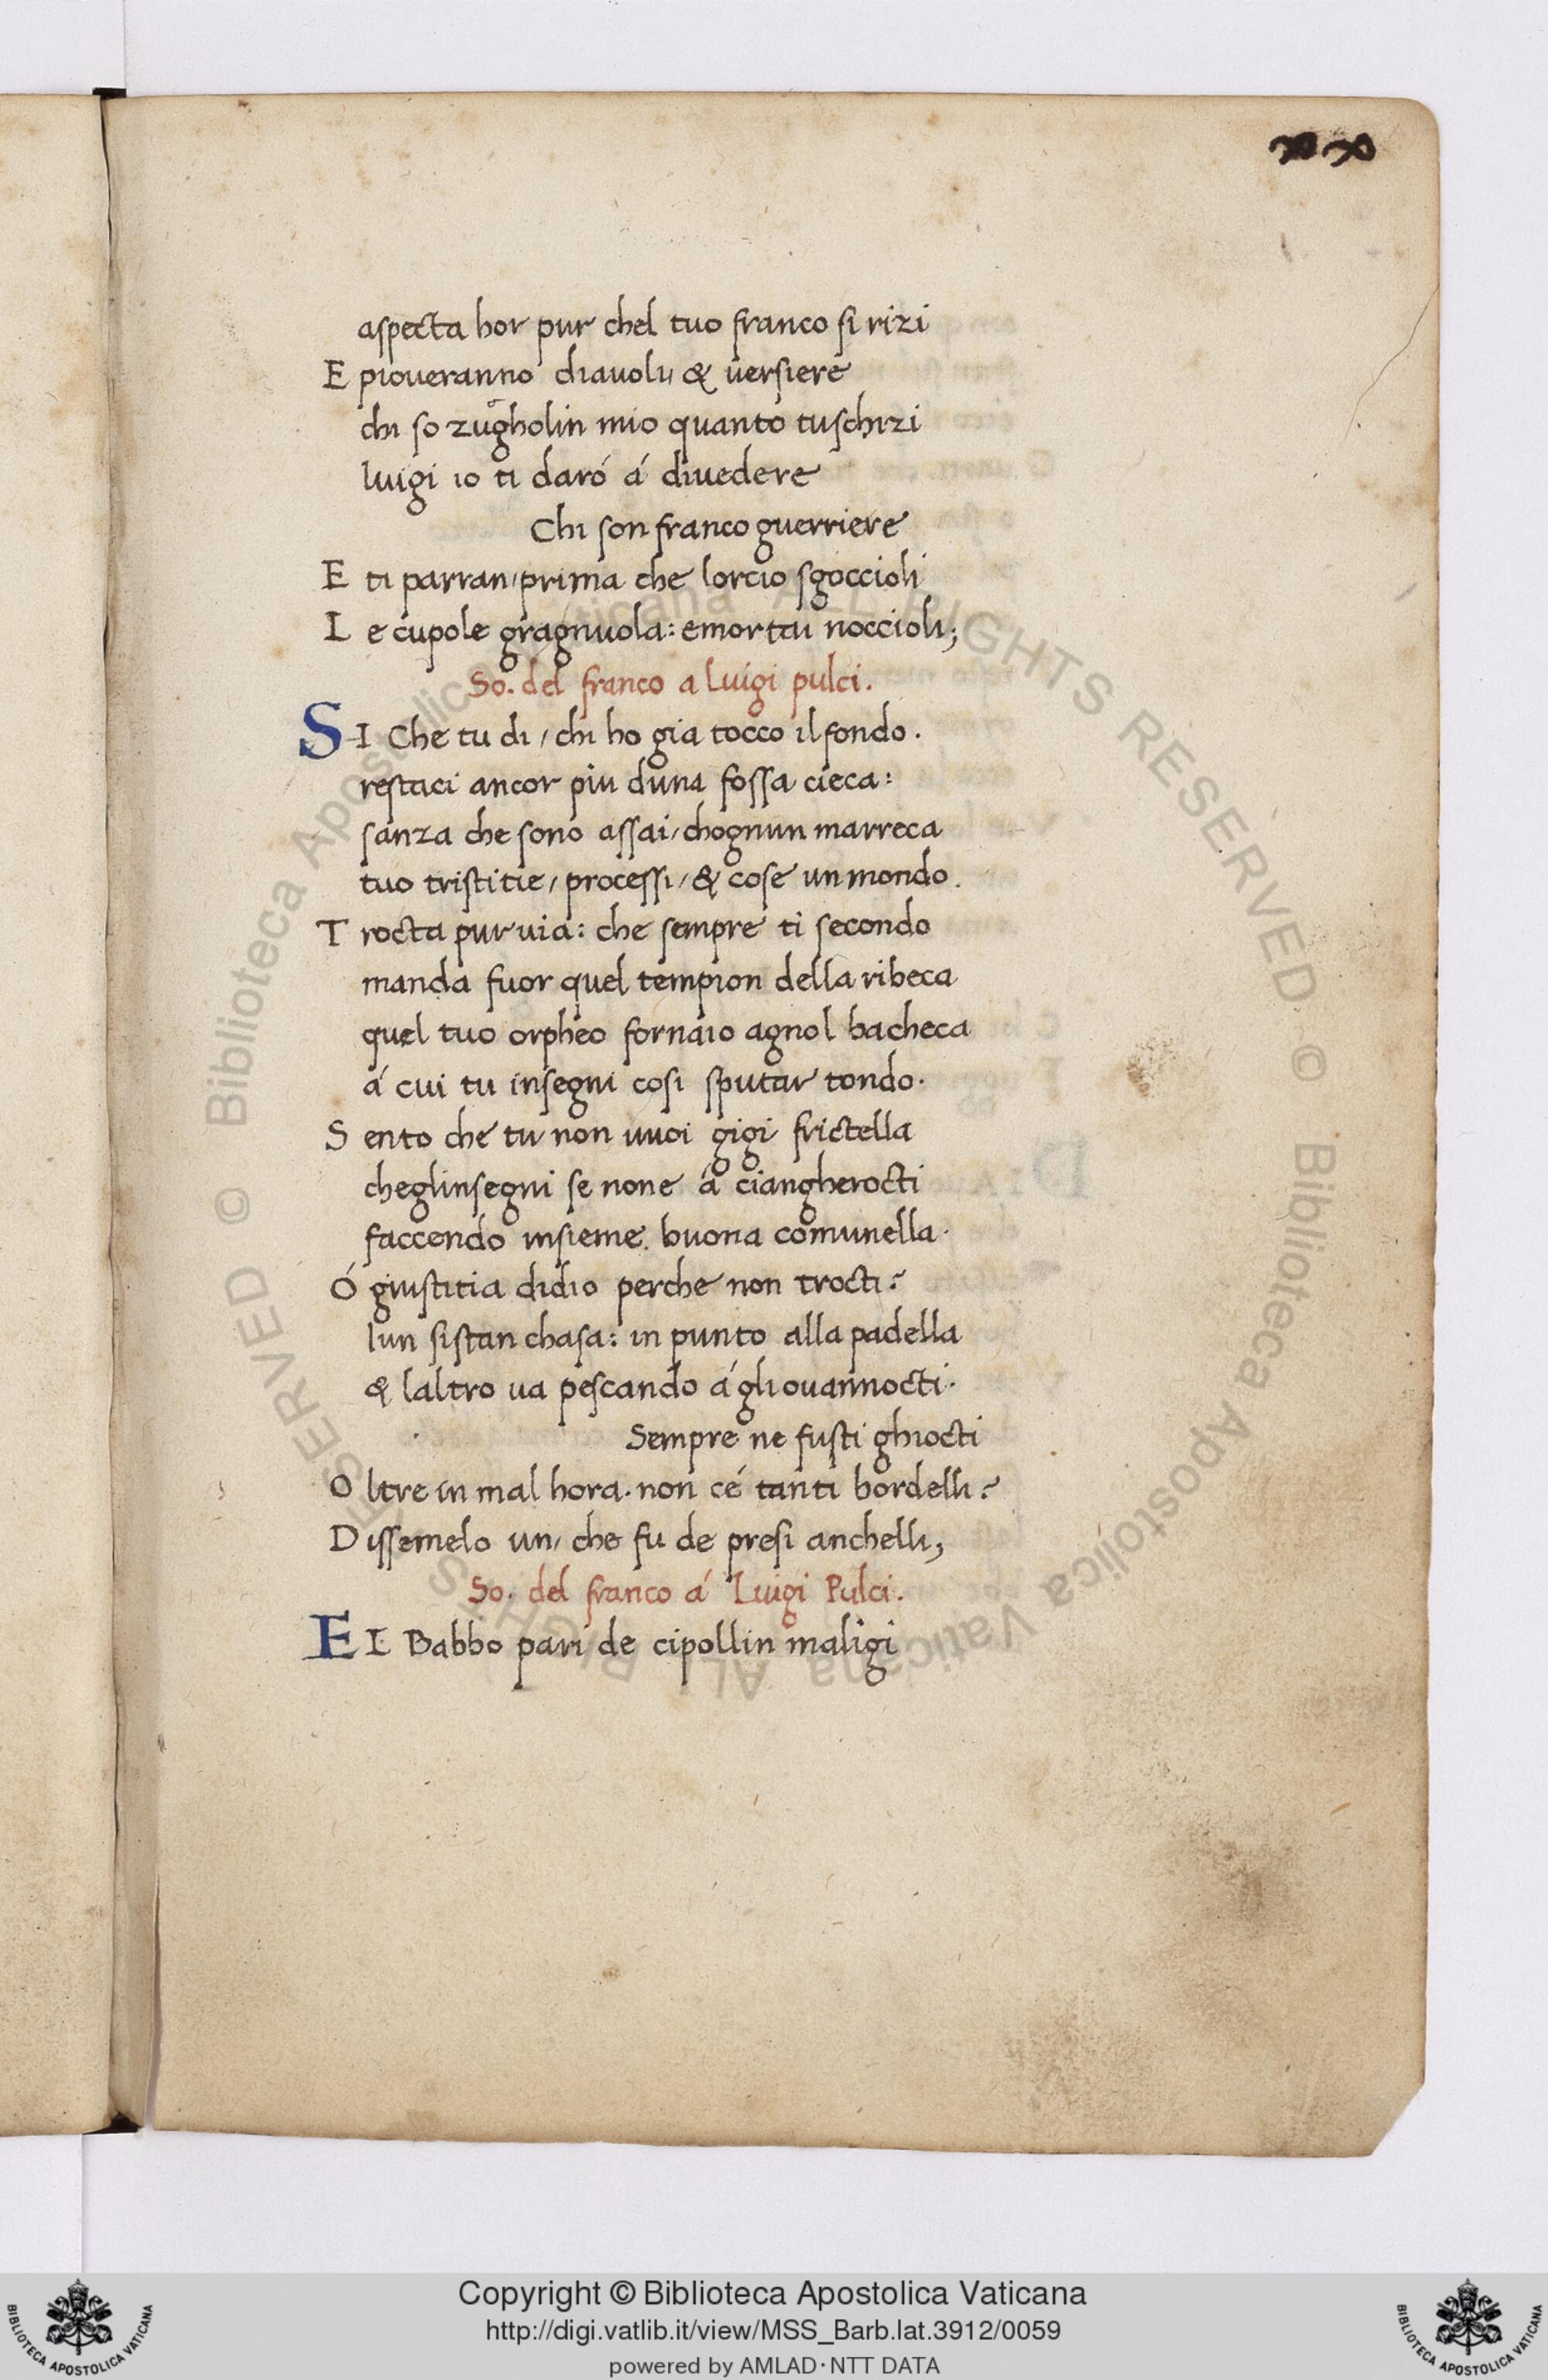 xx
aspecta hor pur chel tuo franco si rizi
E pioueranno diauoli, & uersiere
chi so zugholin mio quanto tuschizi
luigi io ti daró á diuedere
Chi son franco guerriere
E ti parran, prima che lorcio sgoccioli
L e cupole gragnuola: emortai noccioli;
So. del franco a luigi pulci.
SI Che tu di, chi ho gia tocco il fondo.
restaci ancor piu duna fossa cieca:
sanza che sono assai, chognun marreca
tuo tristitie, processi, & cose un mondo.
T rocta pur uia: che sempre ti secondo
manda fuor quel tempion della ribeca
quel tuo orpheo fornaio agnol bacheca
á cui tu insegni cosi sputar tondo.
S ento che tu non uuoi gigi frictella
cheglinsegni se none á ciangherocti
faccendo insieme buona comunella.
Ó giustitia didio perche non trocti?
lun sistan chasa: in punto alla padella
& laltro ua pescando á gliouannocti.
Sempre ne fusti ghiocti
O ltre in mal hora. non cé tanti bordelli?
D issemelo un, che fu de presi anchelli;
So. del franco á Luigi Pulci.
EI Babbo pari de cipollin maligi
© Biblioteca Apostolica Vaticana ALL RIGHTS RESERVED
© Biblioteca Apostolica Vaticana ALL RIGHTS RESERVED
Copyright © Biblioteca Apostolica Vaticana
http://digi.vatlib.it/view/MSS_Barb.lat.3912/0059
powered by AMLAD·NTT DATA
BIBLIOTECA APOSTOLICA VATICANA
BIBLIOTECA APOSTOLICA VATICANA